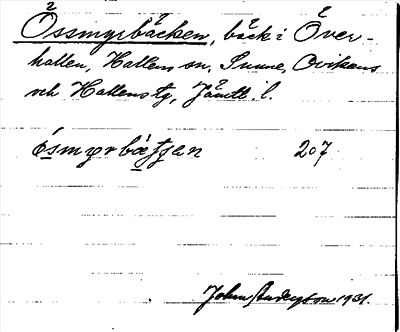 Össmyrbäcken, bäck i Över-
hallen, Hallens sn, Sunne, Ovikens
och Hallens tg, Jämtl. l.
207
John Anderson 1931.